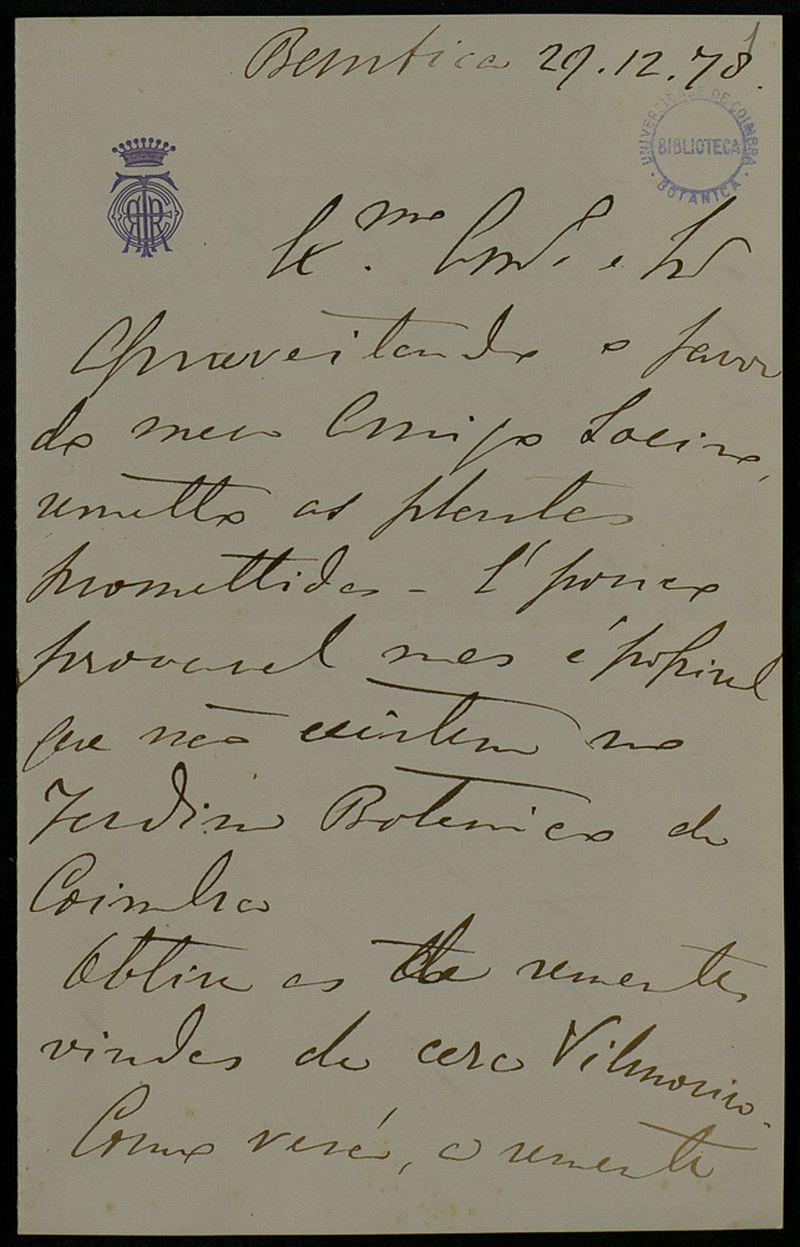 1
Bemfica 29.12.78.
UNIVERSIDADE DE COIMBRA
BIBLIOTECA
BOTANICA
Ex.mo e Sr
Aproveitando o favor
do meu Amigo
remetto as plantas
promettidas - É pouco
provavel mas é possivel
que não existem no
Jardim Botanico de
Coimbra
Obtive as sementes
vindas da casa Vilmorin.
Como verá, a semente